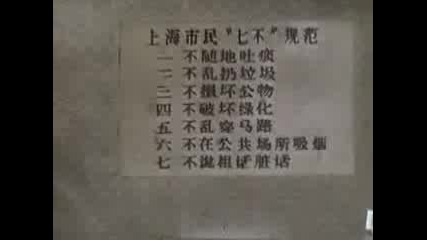 上海市民“七不”规范
一 不随地吐痰
二 不乱扔垃圾
三 不损坏公物
四 不破坏绿化
五 不乱穿马路
六 不在公共场所吸烟
七 不说粗话脏话